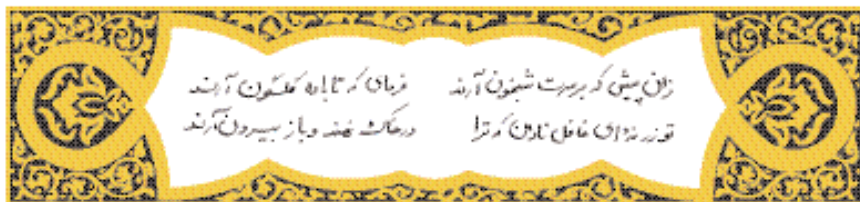 زان پیش که بر سرت شبیخون آرند فرمای که تا باده گلگون آرند
تو زر نه‌ای غافل نادان که ترا در خاک نهند و باز بیرون آرند